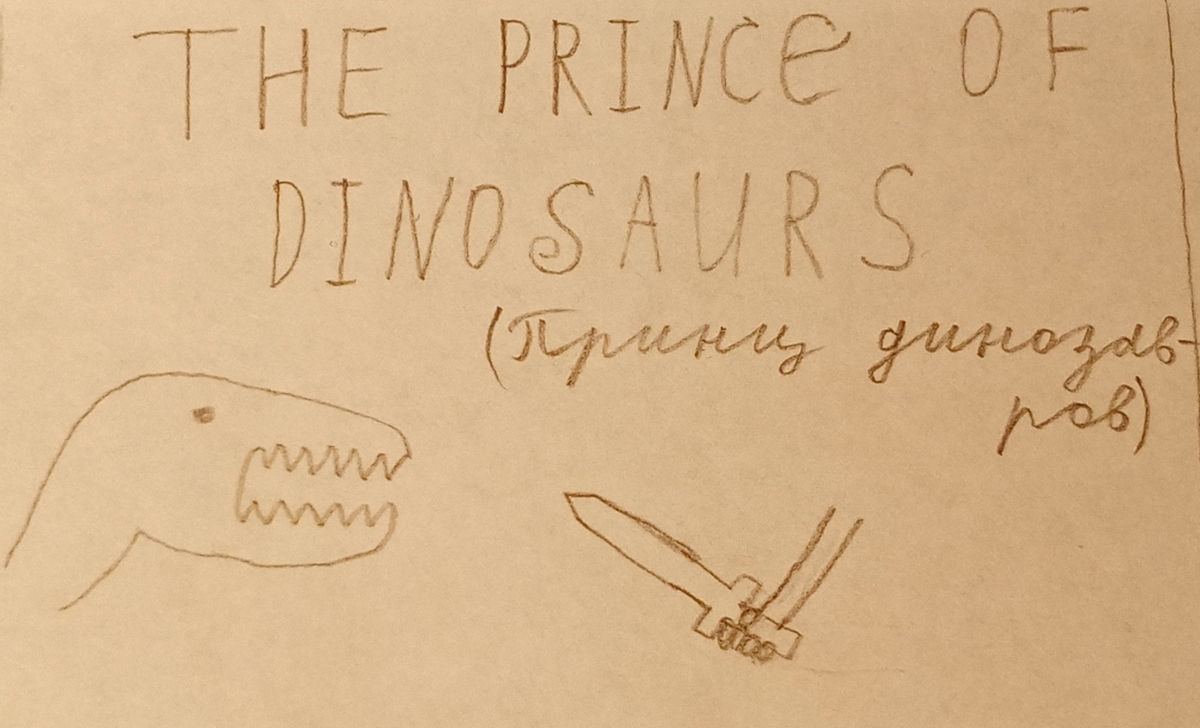 THE PRINCE OF
DINOSAURS
(Принц динозав-
ров)